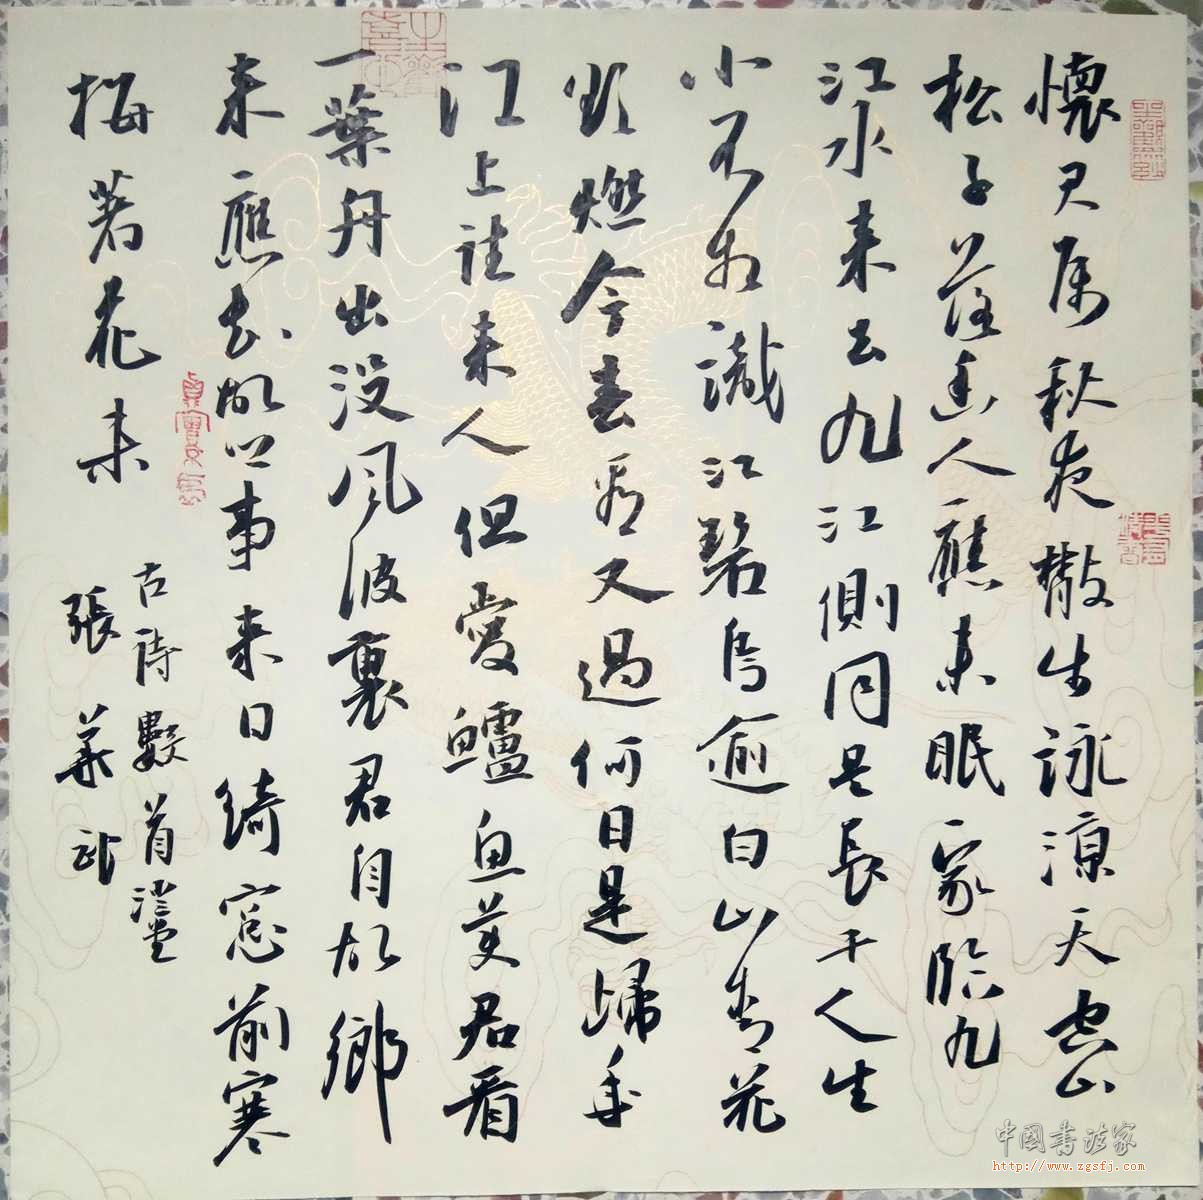 懷君属秋夜散步詠涼天空山
松子落幽人應未眠家臨九
江水来去九江側同是長干人生
小不相識江碧鳥逾白山青花
欲燃今春看又過何日是歸年
江上往来人但愛鱸魚美君看
一葉舟出没風波裏君自故鄉
来應知故鄉事来日綺窓前寒
梅著花未
古詩數首澄堂
張華武
中國书法家
http://www.zgsfj.com